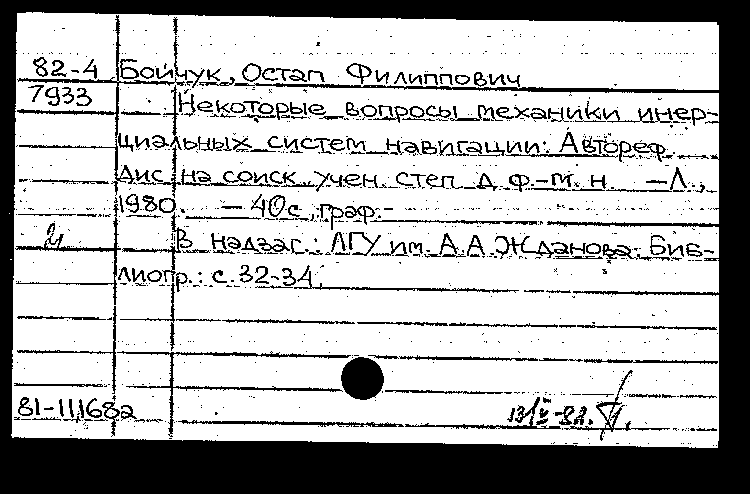 82-4 Бойчук, Остап Филиппович
7933 Некоторые вопросы механики инер-
циальных систем навигации: Автореф.
дис. на соиск. учен. степ. д. ф.-м. н. — Л.,
1980. — 40с., граф. -
В надзаг.: ЛГУ им. А.А. Жданова. Биб-
лиогр.: с. 32-34.
81-111682